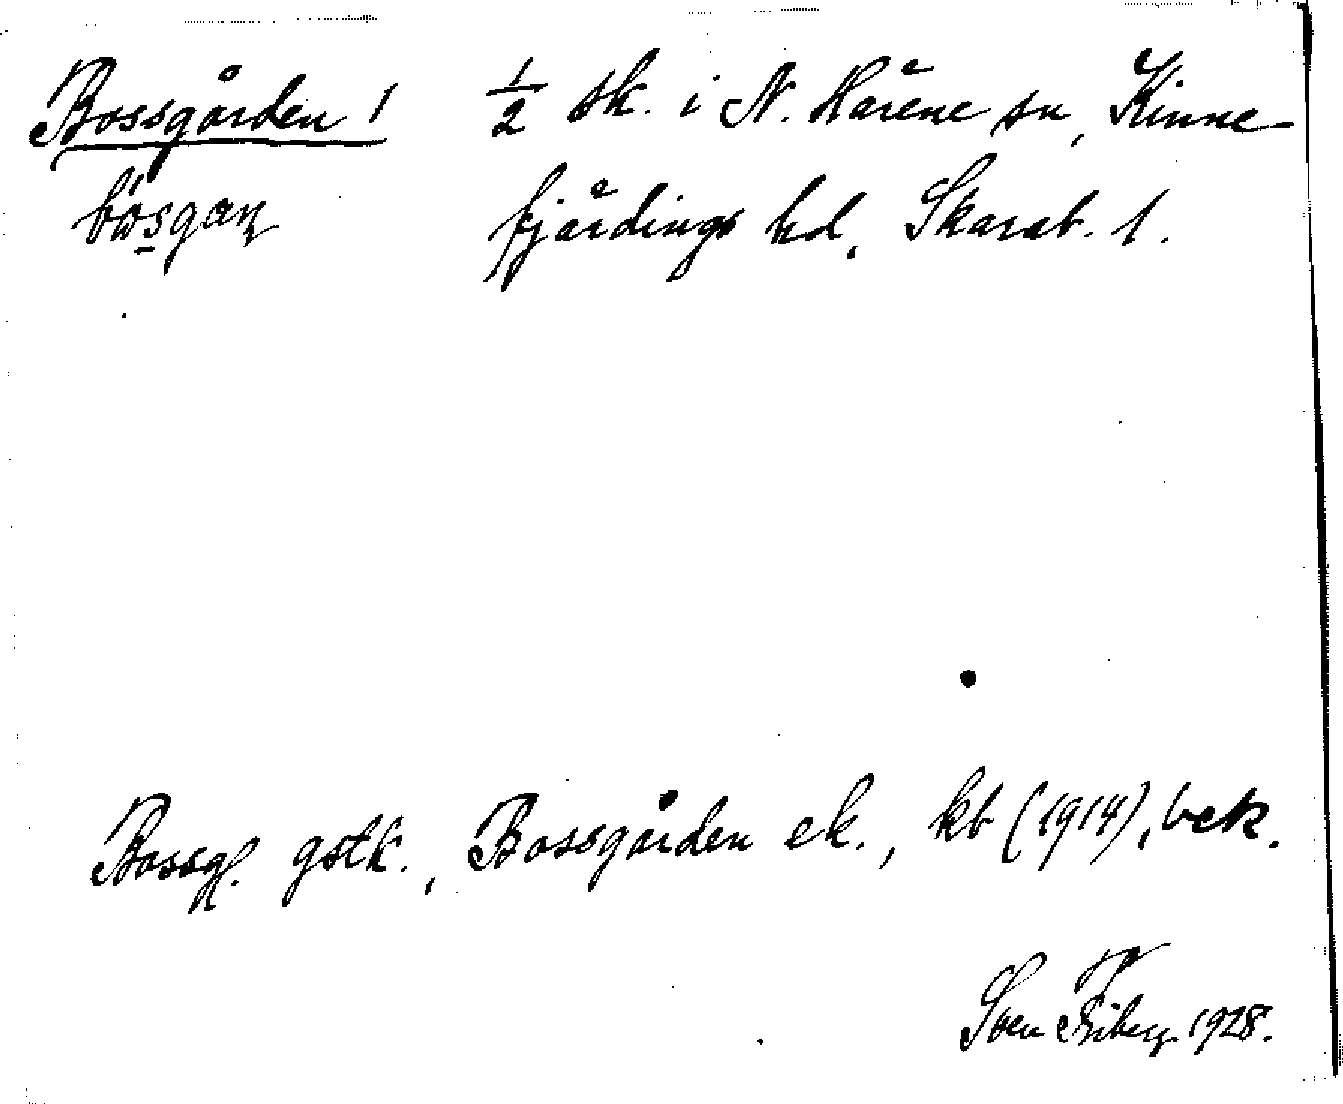 Bossgården 1 ½ sk. i N. Härene sn, Kinne-
fjärdings hd, Skarab. l.
Bossg. gstk., Bossgården ek., kb (1914), bek.
Sven Friberg 1928.